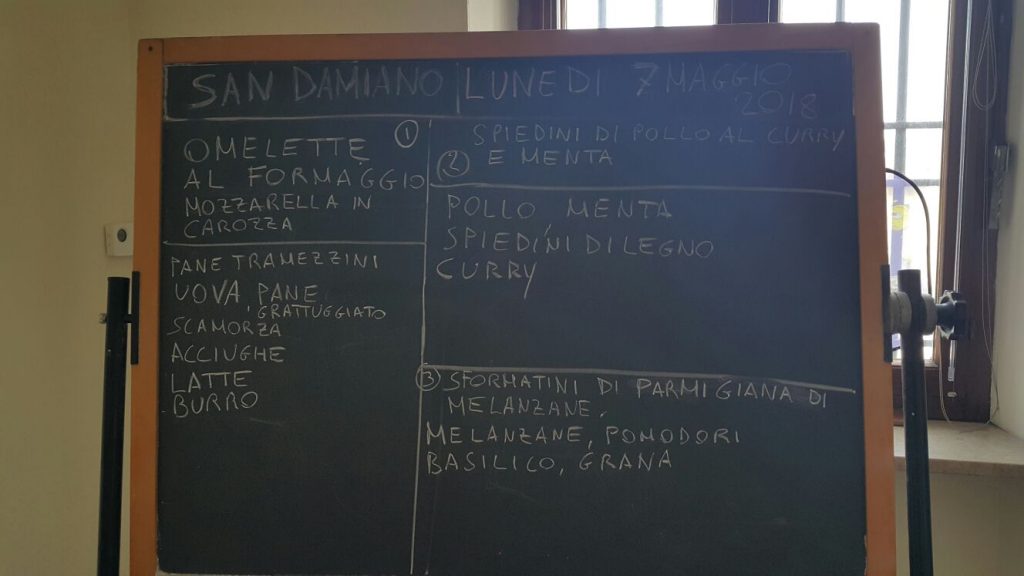 SAN DAMIANO LUNEDI 7 MAGGIO
2018
1
OMELETTE
AL FORMAGGIO
MOZZARELLA IN
CAROZZA
PANE TRAMEZZINI
UOVA, PANE
GRATTUGGIATO
SCAMORZA
ACCIUGHE
LATTE
BURRO
SPIEDINI DI POLLO AL CURRY
2 E MENTA
POLLO MENTA
SPIEDINI DI LEGNO
CURRY
3 SFORMATINI DI PARMIGIANA DI
MELANZANE.
MELANZANE, POMODORI
BASILICO, GRANA